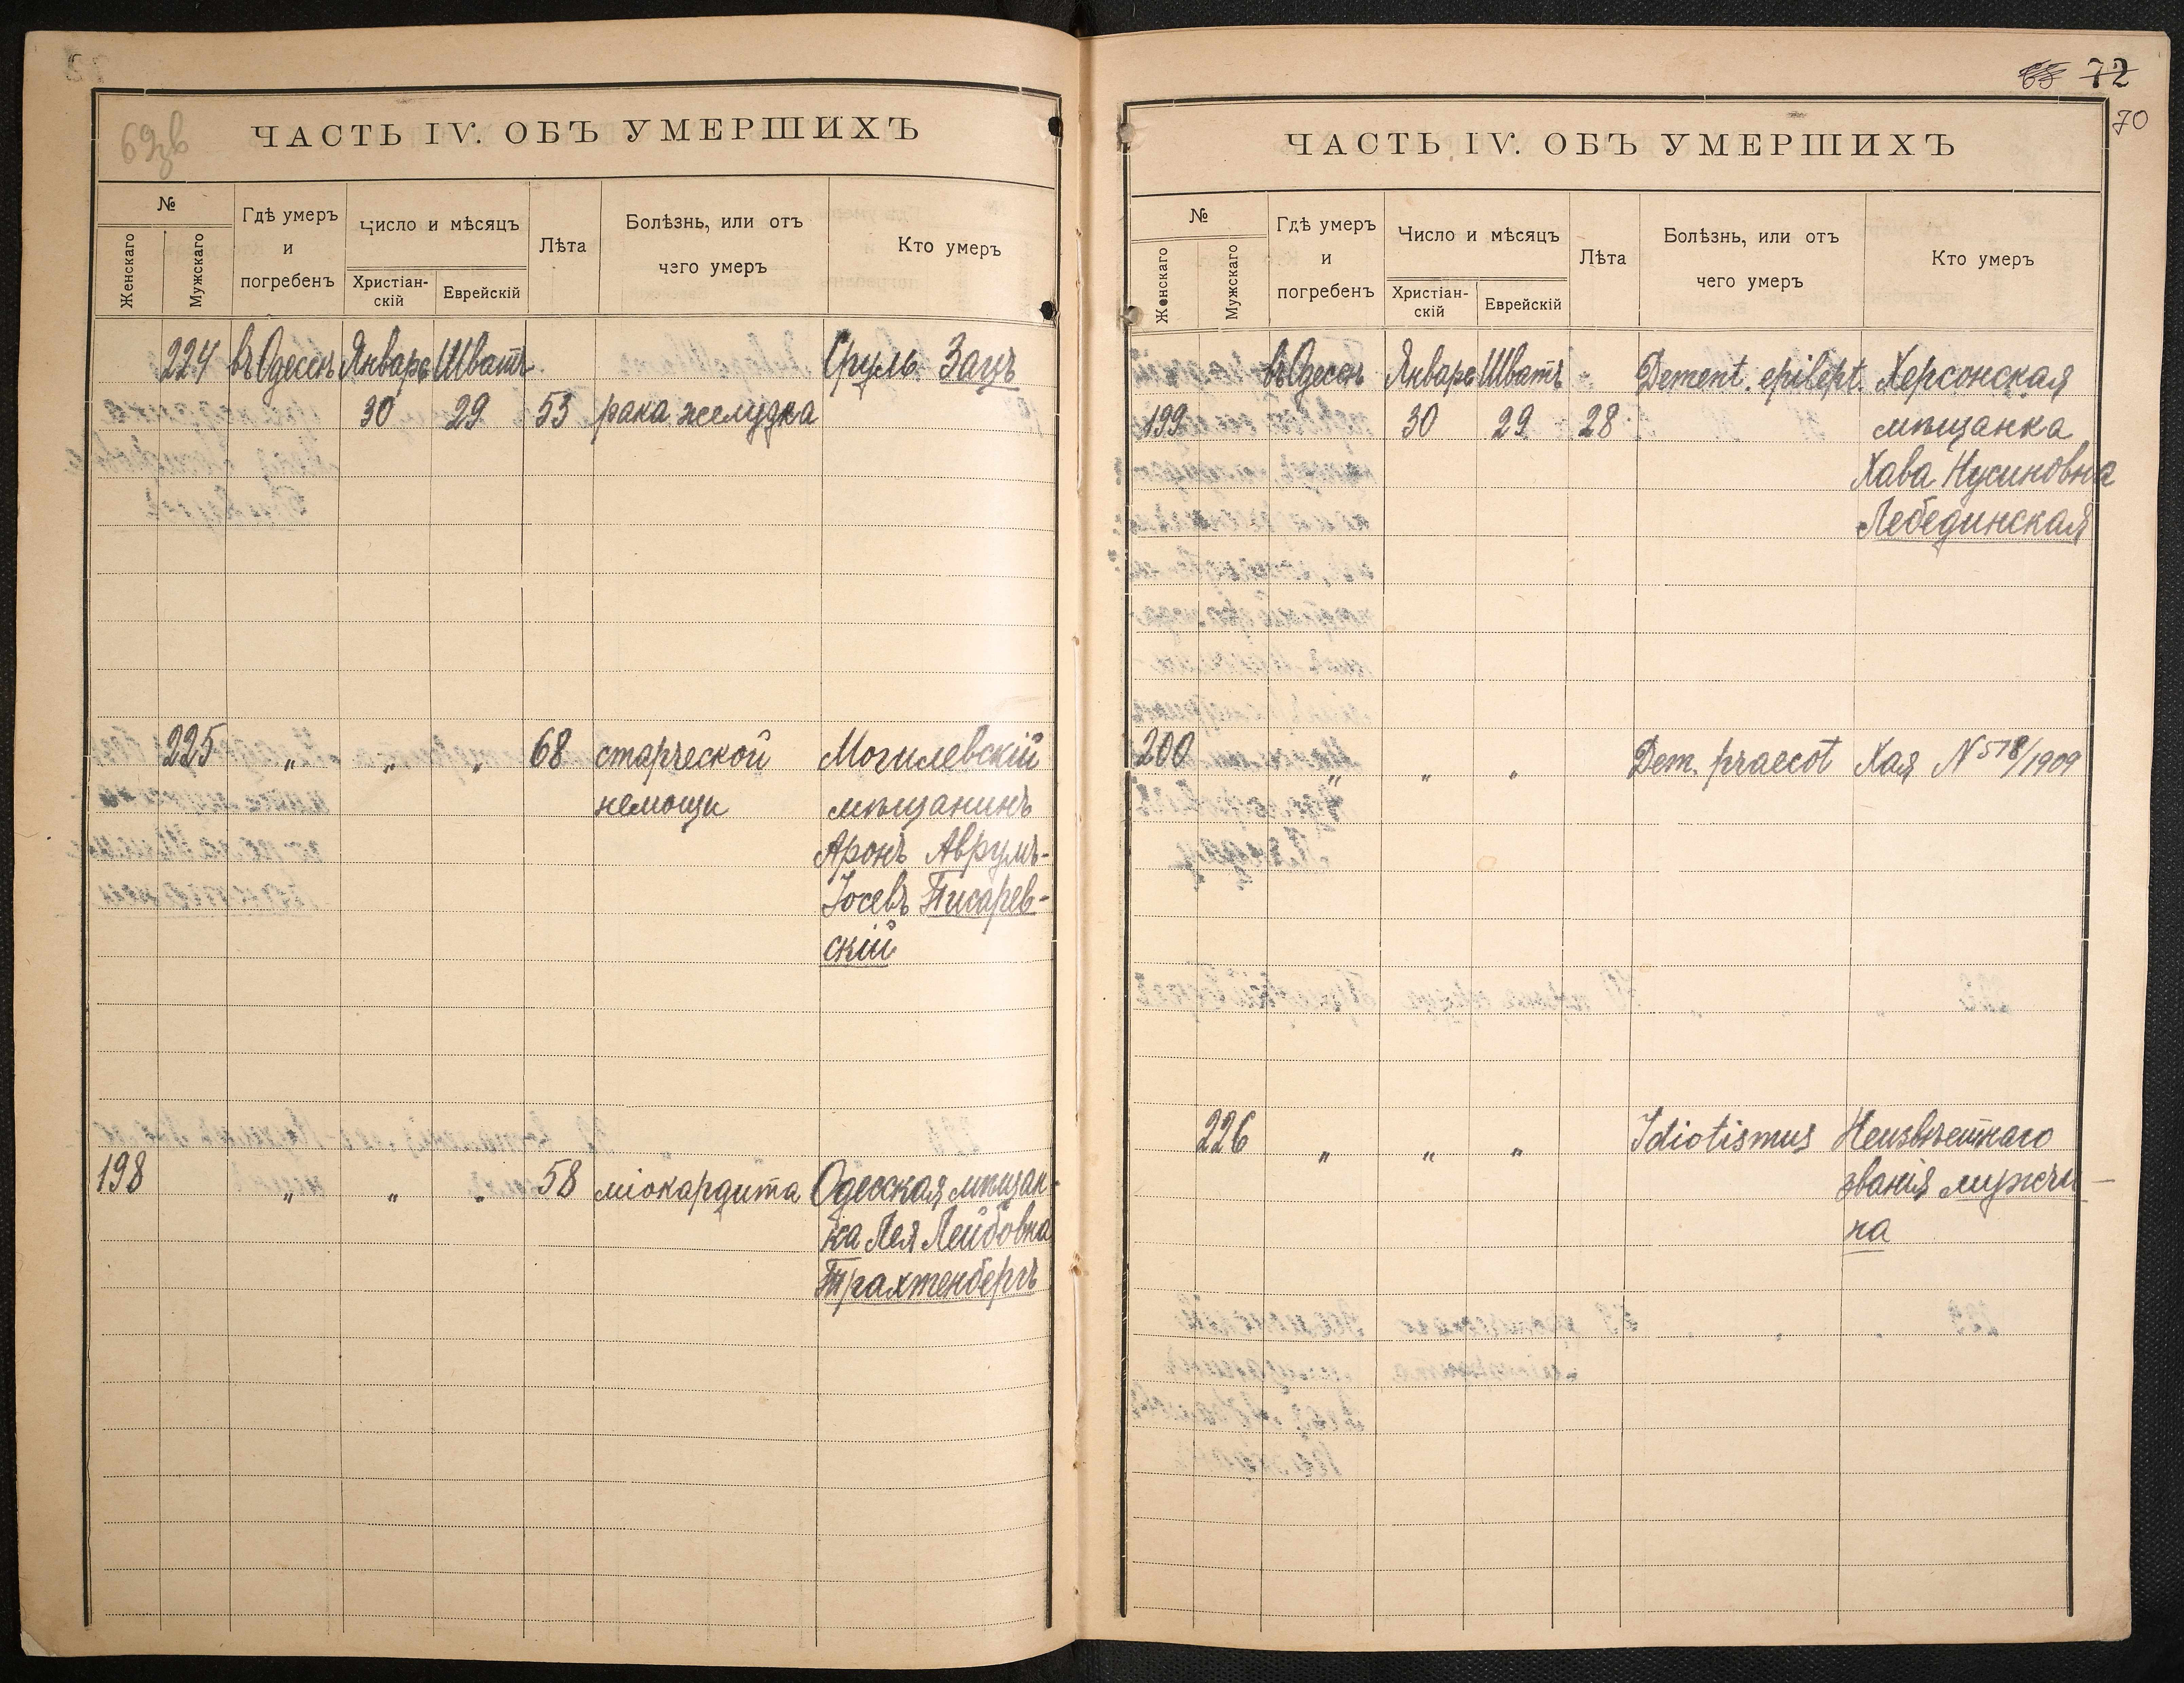 69зв
ЧАСТЬ IV. ОБЪ УМЕРШИХЪ
№
Женскаго
Мужскаго
Гдѣ умеръ
и
погребенъ
Число и мѣсяцъ
Христіан-
скій
Еврейскій
Лѣта
Болѣзнь, или отъ
чего умеръ
Кто умеръ
224 въ Одессѣ Январь Шватъ Сруль Зацъ
30 29 53 рака желудка
225 " " " 68 старческой Могилевскій
немощи мѣщанинъ
Аронъ Аврумъ-
Іосевъ Писарев-
скій
198 " " " 58 міокардита Одесская мѣщан-
ка Лея Лейбовна
Трахтенбергъ
65 72
70
ЧАСТЬ IV. ОБЪ УМЕРШИХЪ
№
Женскаго
Мужскаго
Гдѣ умеръ
и
погребенъ
Число и мѣсяцъ
Христіан-
скій
Еврейскій
Лѣта
Болѣзнь, или отъ
чего умеръ
Кто умеръ
въ Одессѣ Январь Шватъ Dement. epilept. Херсонская
199 30 29 28 мѣщанка
Хава Нусиновна
Лебединская
200 " " " Dem. praecot Хая N 578/1909
226 " " " Idiotismus Неизвѣстнаго
званія мужчи-
на